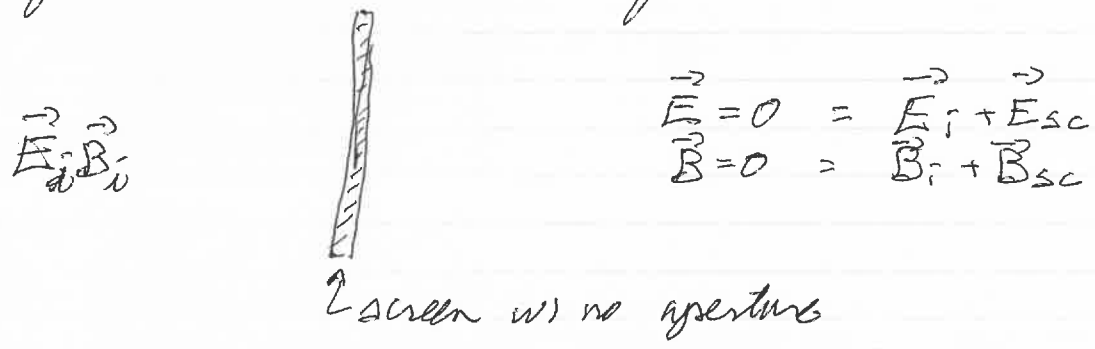 $\vec{E} = 0 = \vec{E}_i + \vec{E}_{sc}$
$\vec{E}_i \vec{B}_i$
$\vec{B} = 0 = \vec{B}_i + \vec{B}_{sc}$
↑ screen w/ no aperture